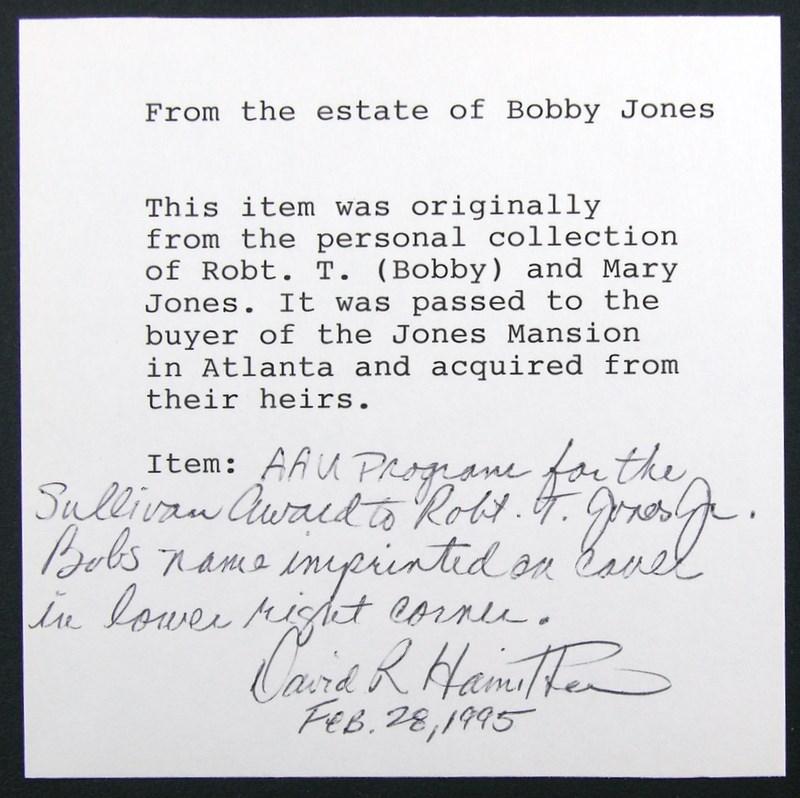 From the estate of Bobby Jones
This item was originally
from the personal collection
of Robt. T. (Bobby) and Mary
Jones. It was passed to the
buyer of the Jones Mansion
in Atlanta and acquired from
their heirs.
Item: AAU Program for the
Sullivan Award to Robt. T. Jones Jr.
Bobs name imprinted on cover
in lower right corner.
David R
Feb. 28, 1995